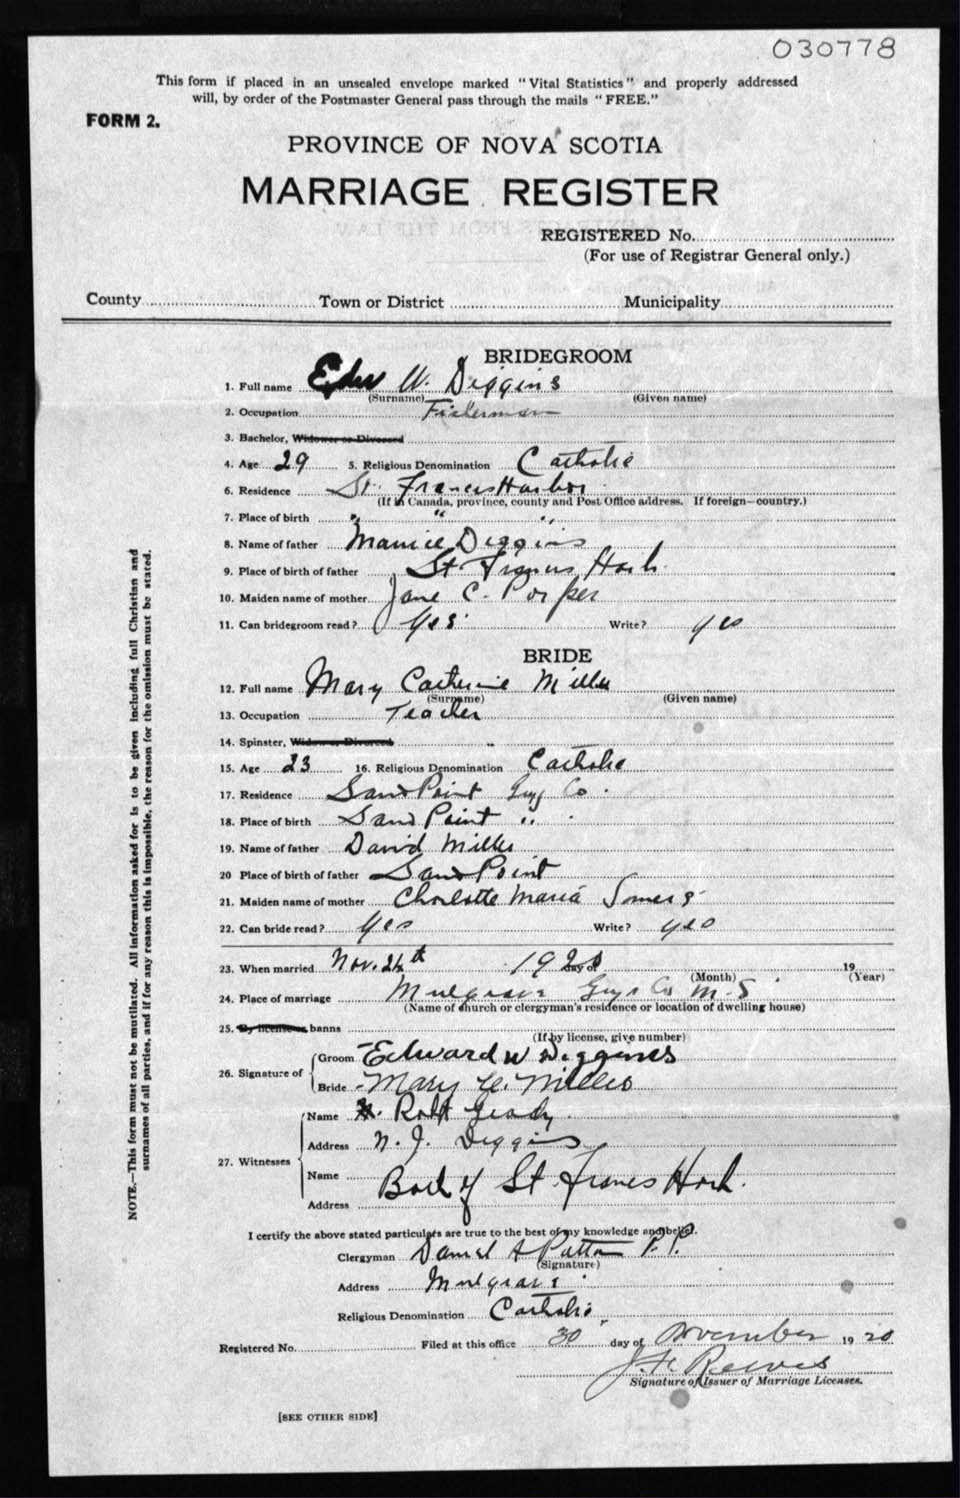 030778
This form if placed in an unsealed envelope marked "Vital Statistics" and properly addressed
will, by order of the Postmaster General pass through the mails "FREE."
FORM 2.
PROVINCE OF NOVA SCOTIA
MARRIAGE REGISTER
REGISTERED No.
(For use of Registrar General only.)
County Town or District Municipality
BRIDEGROOM
1. Full name Edw W. Diggins
(Surname) (Given name)
2. Occupation Fisherman
3. Bachelor, Widower or Divorced
4. Age 29 5. Religious Denomination Catholic
6. Residence St. Francis Harbor
(If in Canada, province, county and Post Office address. If foreign—country.)
7. Place of birth " " "
8. Name of father Maurice Diggins
9. Place of birth of father St. Francis Harb.
10. Maiden name of mother Jane C.
11. Can bridegroom read? Yes Write? yes
BRIDE
12. Full name Mary Catherine Miller
(Surname) (Given name)
13. Occupation Teacher
14. Spinster, Widow or Divorced
15. Age 23 16. Religious Denomination Catholic
17. Residence Sand Point Guy Co.
18. Place of birth Sand Point "
19. Name of father David Miller
20 Place of birth of father Sand Point
21. Maiden name of mother Charlotte Maria Somers
22. Can bride read? Yes Write? yes
23. When married Nov. 24th 1920 day of 19
(Month) (Year)
24. Place of marriage Mulgrave Guy Co N.S.
(Name of church or clergyman's residence or location of dwelling house)
25. By license or banns
(If by license, give number)
26. Signature of Groom Edward W Diggines
Bride Mary C. Miller
27. Witnesses Name Grady
Address N. J. Diggins
Name
Both of St Francis Harb.
Address
I certify the above stated particulars are true to the best of my knowledge and belief.
Clergyman Daniel A Patton P.P.
(Signature)
Address Mulgrave
Religious Denomination Catholic
Registered No. Filed at this office 30 day of November 1920
J. H. Reeves
Signature of Issuer of Marriage Licenses.
[SEE OTHER SIDE]
NOTE.—This form must not be mutilated. All information asked for is to be given including full Christian and
surnames of all parties, and if for any reason this is impossible, the reason for the omission must be stated.